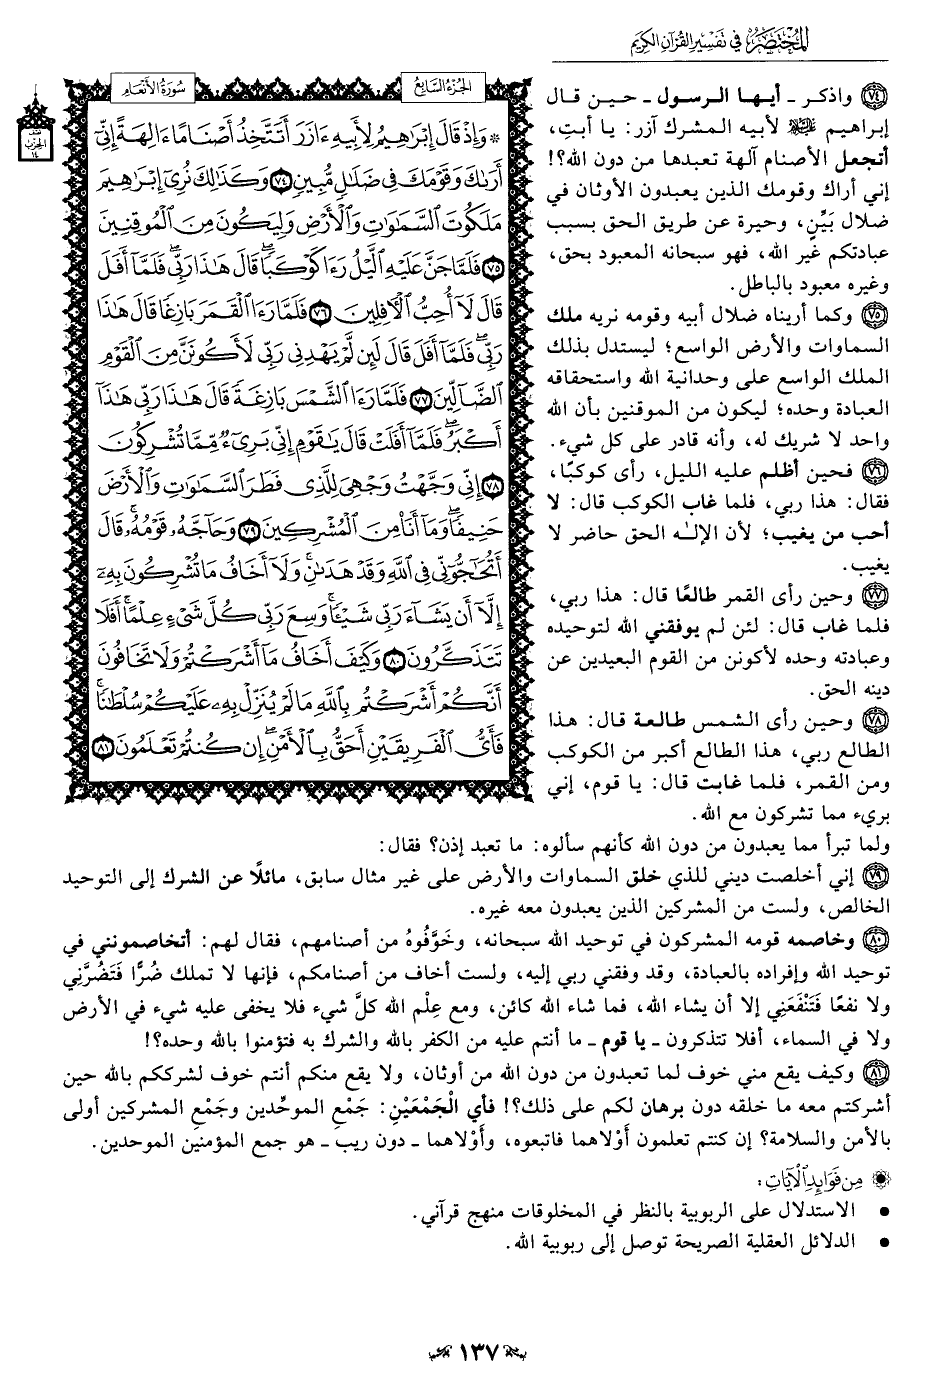 المختصر في تفسير القرآن الكريم
نصف الحزب ١٤
سورة الأنعام
الجزء السابع
* وَإِذْ قَالَ إِبْرَٰهِيمُ لِأَبِيهِ ءَازَرَ أَتَتَّخِذُ أَصْنَامًا ءَالِهَةً إِنِّىٓ
أَرَىٰكَ وَقَوْمَكَ فِى ضَلَٰلٍ مُّبِينٍ ٧٤ وَكَذَٰلِكَ نُرِىٓ إِبْرَٰهِيمَ
مَلَكُوتَ ٱلسَّمَٰوَٰتِ وَٱلْأَرْضِ وَلِيَكُونَ مِنَ ٱلْمُوقِنِينَ
٧٥ فَلَمَّا جَنَّ عَلَيْهِ ٱلَّيْلُ رَءَا كَوْكَبًا ۖ قَالَ هَٰذَا رَبِّى ۖ فَلَمَّآ أَفَلَ
قَالَ لَآ أُحِبُّ ٱلْءَافِلِينَ ٧٦ فَلَمَّا رَءَا ٱلْقَمَرَ بَازِغًا قَالَ هَٰذَا
رَبِّى ۖ فَلَمَّآ أَفَلَ قَالَ لَئِن لَّمْ يَهْدِنِى رَبِّى لَأَكُونَنَّ مِنَ ٱلْقَوْمِ
ٱلضَّآلِّينَ ٧٧ فَلَمَّا رَءَا ٱلشَّمْسَ بَازِغَةً قَالَ هَٰذَا رَبِّى هَٰذَآ
أَكْبَرُ ۖ فَلَمَّآ أَفَلَتْ قَالَ يَٰقَوْمِ إِنِّى بَرِىٓءٌ مِّمَّا تُشْرِكُونَ
٧٨ إِنِّى وَجَّهْتُ وَجْهِىَ لِلَّذِى فَطَرَ ٱلسَّمَٰوَٰتِ وَٱلْأَرْضَ
حَنِيفًا ۖ وَمَآ أَنَا۠ مِنَ ٱلْمُشْرِكِينَ ٧٩ وَحَآجَّهُۥ قَوْمُهُۥ ۚ قَالَ
أَتُحَٰٓجُّوٓنِّى فِى ٱللَّهِ وَقَدْ هَدَىٰنِ ۚ وَلَآ أَخَافُ مَا تُشْرِكُونَ بِهِۦٓ
إِلَّآ أَن يَشَآءَ رَبِّى شَيْـًٔا ۗ وَسِعَ رَبِّى كُلَّ شَىْءٍ عِلْمًا ۗ أَفَلَا
تَتَذَكَّرُونَ ٨٠ وَكَيْفَ أَخَافُ مَآ أَشْرَكْتُمْ وَلَا تَخَافُونَ
أَنَّكُمْ أَشْرَكْتُم بِٱللَّهِ مَا لَمْ يُنَزِّلْ بِهِۦ عَلَيْكُمْ سُلْطَٰنًا ۚ
فَأَىُّ ٱلْفَرِيقَيْنِ أَحَقُّ بِٱلْأَمْنِ ۖ إِن كُنتُمْ تَعْلَمُونَ ٨١
٧٤ واذكر ـ أيها الرسول ـ حين قال
إبراهيم ﷺ لأبيه المشرك آزر: يا أبتِ،
أتجعل الأصنام آلهة تعبدها من دون الله؟!
إني أراك وقومك الذين يعبدون الأوثان في
ضلال بَيِّنٍ، وحيرة عن طريق الحق بسبب
عبادتكم غير الله، فهو سبحانه المعبود بحق،
وغيره معبود بالباطل.
٧٥ وكما أريناه ضلال أبيه وقومه نريه ملك
السماوات والأرض الواسع؛ ليستدل بذلك
الملك الواسع على وحدانية الله واستحقاقه
العبادة وحده؛ ليكون من الموقنين بأن الله
واحد لا شريك له، وأنه قادر على كل شيء.
٧٦ فحين أظلم عليه الليل، رأى كوكبًا،
فقال: هذا ربي، فلما غاب الكوكب قال: لا
أحب من يغيب؛ لأن الإلـٰه الحق حاضر لا
يغيب.
٧٧ وحين رأى القمر طالعًا قال: هذا ربي،
فلما غاب قال: لئن لم يوفقني الله لتوحيده
وعبادته وحده لأكونن من القوم البعيدين عن
دينه الحق.
٧٨ وحين رأى الشمس طالعة قال: هذا
الطالع ربي، هذا الطالع أكبر من الكوكب
ومن القمر، فلما غابت قال: يا قوم، إني
بريء مما تشركون مع الله.
ولما تبرأ مما يعبدون من دون الله كأنهم سألوه: ما تعبد إذن؟ فقال:
٧٩ إني أخلصت ديني للذي خلق السماوات والأرض على غير مثال سابق، مائلًا عن الشرك إلى التوحيد
الخالص، ولست من المشركين الذين يعبدون معه غيره.
٨٠ وخاصمه قومه المشركون في توحيد الله سبحانه، وخَوَّفُوهُ من أصنامهم، فقال لهم: أتخاصمونني في
توحيد الله وإفراده بالعبادة، وقد وفقني ربي إليه، ولست أخاف من أصنامكم، فإنها لا تملك ضُرًّا فَتَضُرَّنِي
ولا نفعًا فَتَنْفَعَنِي إلا أن يشاء الله، فما شاء الله كائن، ومع عِلْم الله كلَّ شيء فلا يخفى عليه شيء في الأرض
ولا في السماء، أفلا تتذكرون ـ يا قوم ـ ما أنتم عليه من الكفر بالله والشرك به فتؤمنوا بالله وحده؟!
٨١ وكيف يقع مني خوف لما تعبدون من دون الله من أوثان، ولا يقع منكم أنتم خوف لشرككم بالله حين
أشركتم معه ما خلقه دون برهان لكم على ذلك؟! فأي الْجَمْعَيْنِ: جَمْعِ الموحِّدين وجَمْعِ المشركين أولى
بالأمن والسلامة؟ إن كنتم تعلمون أَوْلاهما فاتبعوه، وأَوْلاهما ـ دون ريب ـ هو جمع المؤمنين الموحدين.
مِن فَوَائِدِ الآيَاتِ:
• الاستدلال على الربوبية بالنظر في المخلوقات منهج قرآني.
• الدلائل العقلية الصريحة توصل إلى ربوبية الله.
١٣٧